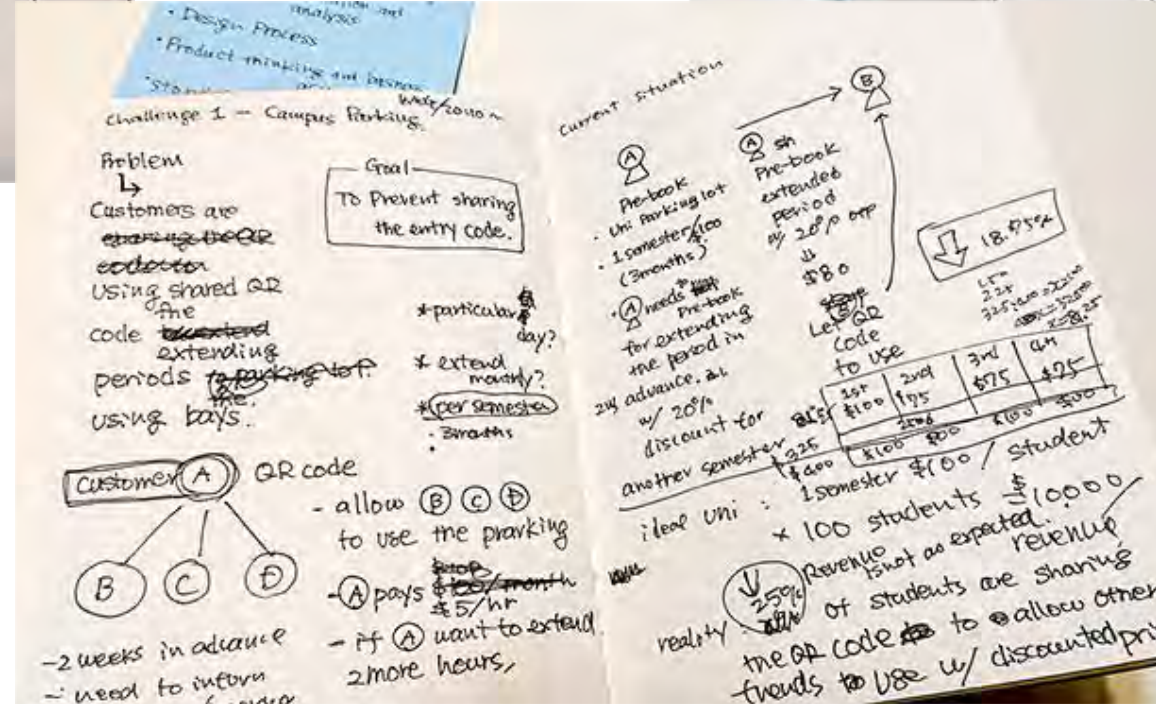 analysis
• Design Process
• Product thinking and
Challenge 1 – Campus Parking.
Problem
Customers are
using shared QR
the
code
extending
periods
the
using bays.
Goal
To Prevent sharing
the entry code.
* particular
day?
* extend
monthly?
* per semester
· 3months
Customer A QR code
B C D
- allow B C D
to use the prarking
- A pays $100/month
$5/hr
- if A want to extend
2 more hours,
- 2 weeks in advance
- need to inform
Current situation
A
Pre-book
· Uni Parking lot
· 1 semester/$100
(3months)
· A needs to
Pre-book
for extending
the period in
advance.
w/ 20%
discount for
another semester
A
Pre-book
extended
period
w/ 20% off
$80
Let QR
code
to use
B
18.75%
1st 2nd 3rd 4th
$100 $75 $75 $75
$325
$400 $100 $100 $100 $100
ideal uni : 1 semester $100 / student
× 100 students = $10000
revenue
Revenue
is not as expected.
reality : 25% of students are sharing
the QR code to allow other
friends to use w/ discounted pri